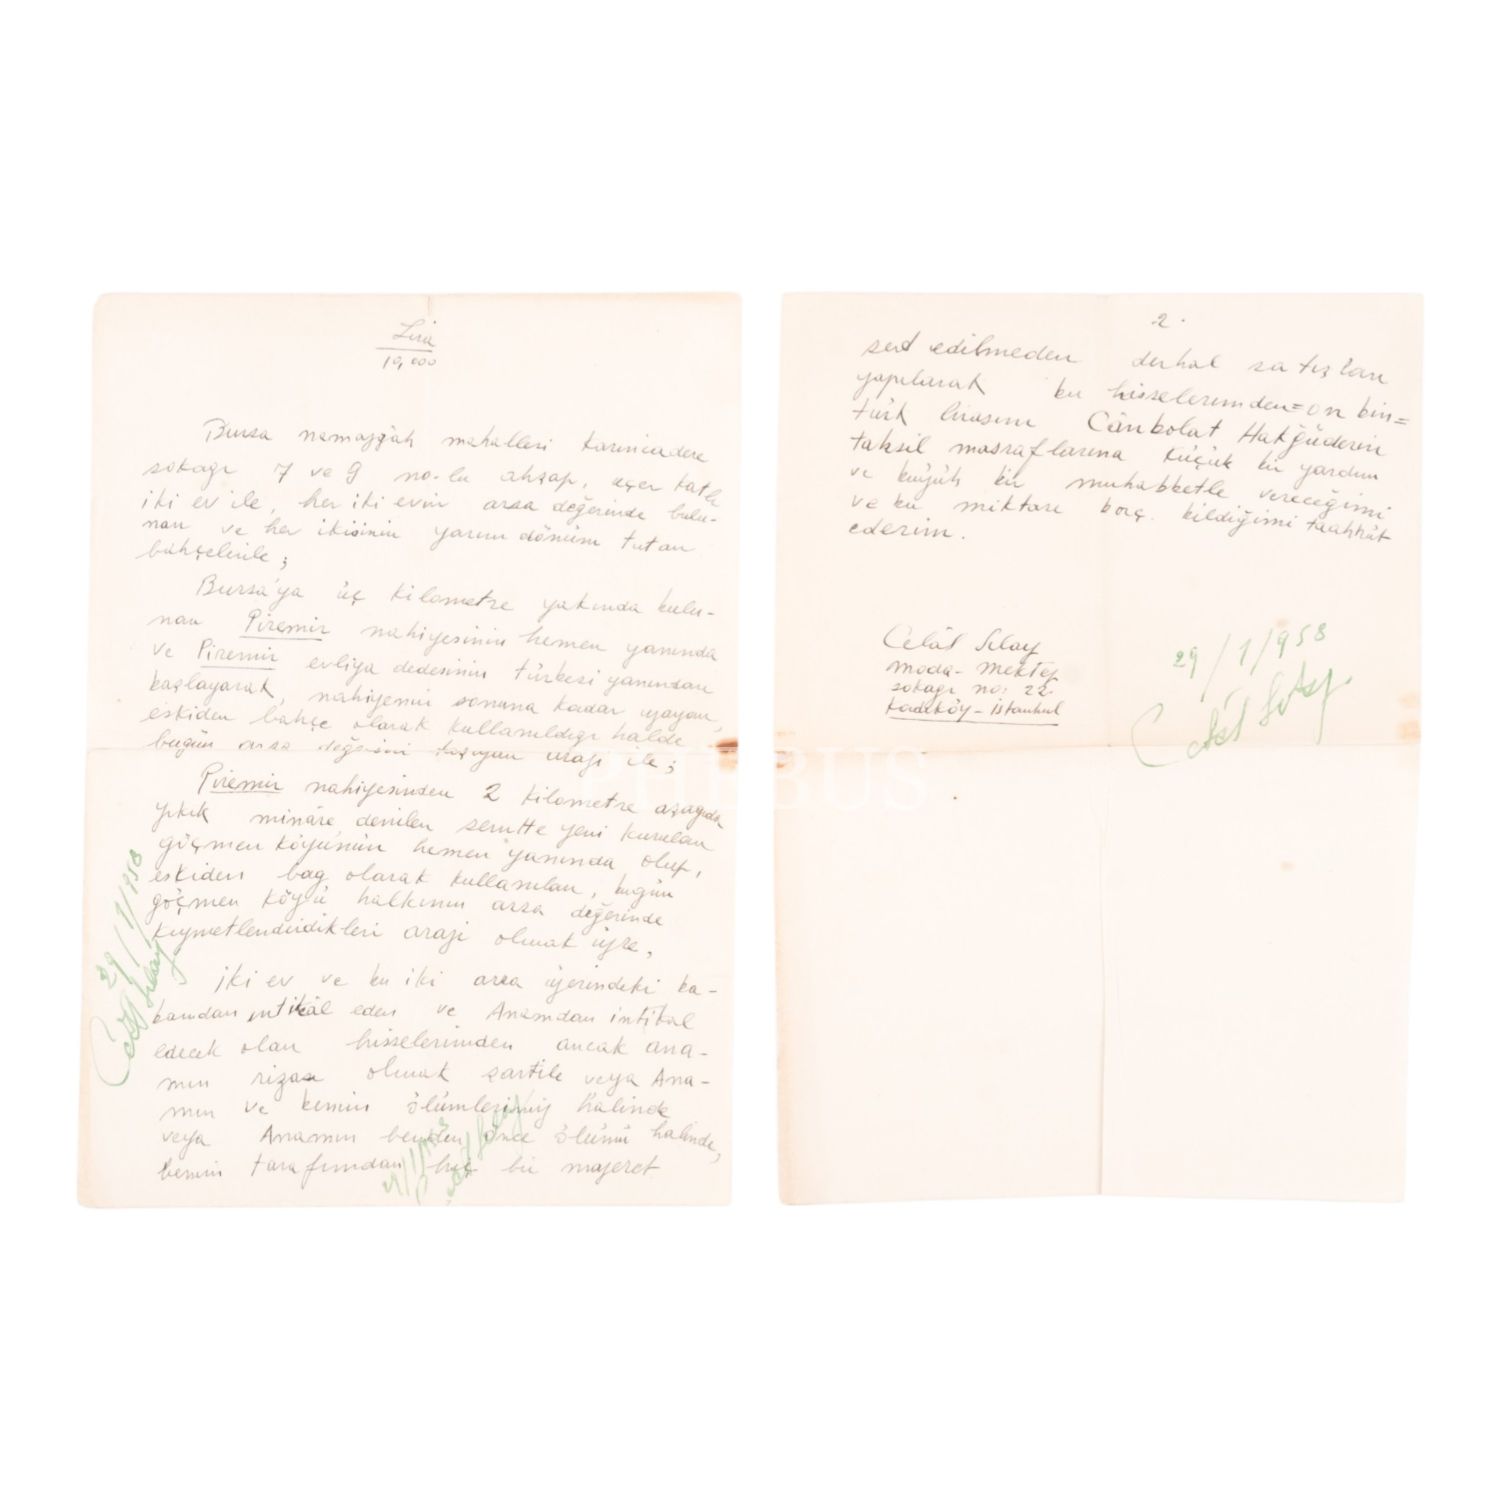 Lira
10,000
Bursa namazgâh mahallesi Karıncadere
sokağı 7 ve 9 no.lu ahşap, üçer katlı
iki ev ile, her iki evin arsa değerinde bulu-
nan ve her ikisinin yarım dönüm tutan
bahçelerile;
Bursa'ya üç kilometre yakında bulu-
nan Piremir nahiyesinin hemen yanında
ve Piremir evliya dedesinin türbesi yanından
başlayarak, nahiyenin sonuna kadar uzayan,
eskiden bahçe olarak kullanıldığı halde
bugün arsa değerini taşıyan arazi ile;
Piremir nahiyesinden 2 kilometre aşağıda
yıkık minâre denilen semtte yeni kurulan
göçmen köyünün hemen yanında olup,
eskiden bağ olarak kullanılan, bugün
göçmen köyü halkının arsa değerinde
kıymetlendirdikleri arazi olmak üzre,
iki ev ve bu iki arsa üzerindeki ba-
bamdan intikâl eden ve Anamdan intikal
edecek olan hisselerimden ancak ana-
mın rızası olmak şartile veya Ana-
mın ve benim ölümlerimiz hâlinde
veya Anamın benden önce ölümü halinde,
benim tarafımdan hiç bir mazeret
29/1/1958
Celâl Sılay
29/1/1958
Celâl Sılay
2.
serd edilmeden derhal satışları
yapılarak bu hisselerimden=on bin=
türk lirasını Cânbolat Hakgüderin
tahsil masraflarına küçük bir yardım
ve büyük bir muhabbetle vereceğimi
ve bu miktarı borç bildiğimi taahhüt
ederim.
Celâl Sılay
moda - Mektep
sokağı no: 22
Kadıköy - İstanbul
29/1/1958
Celâl Sılay
PHEBUS